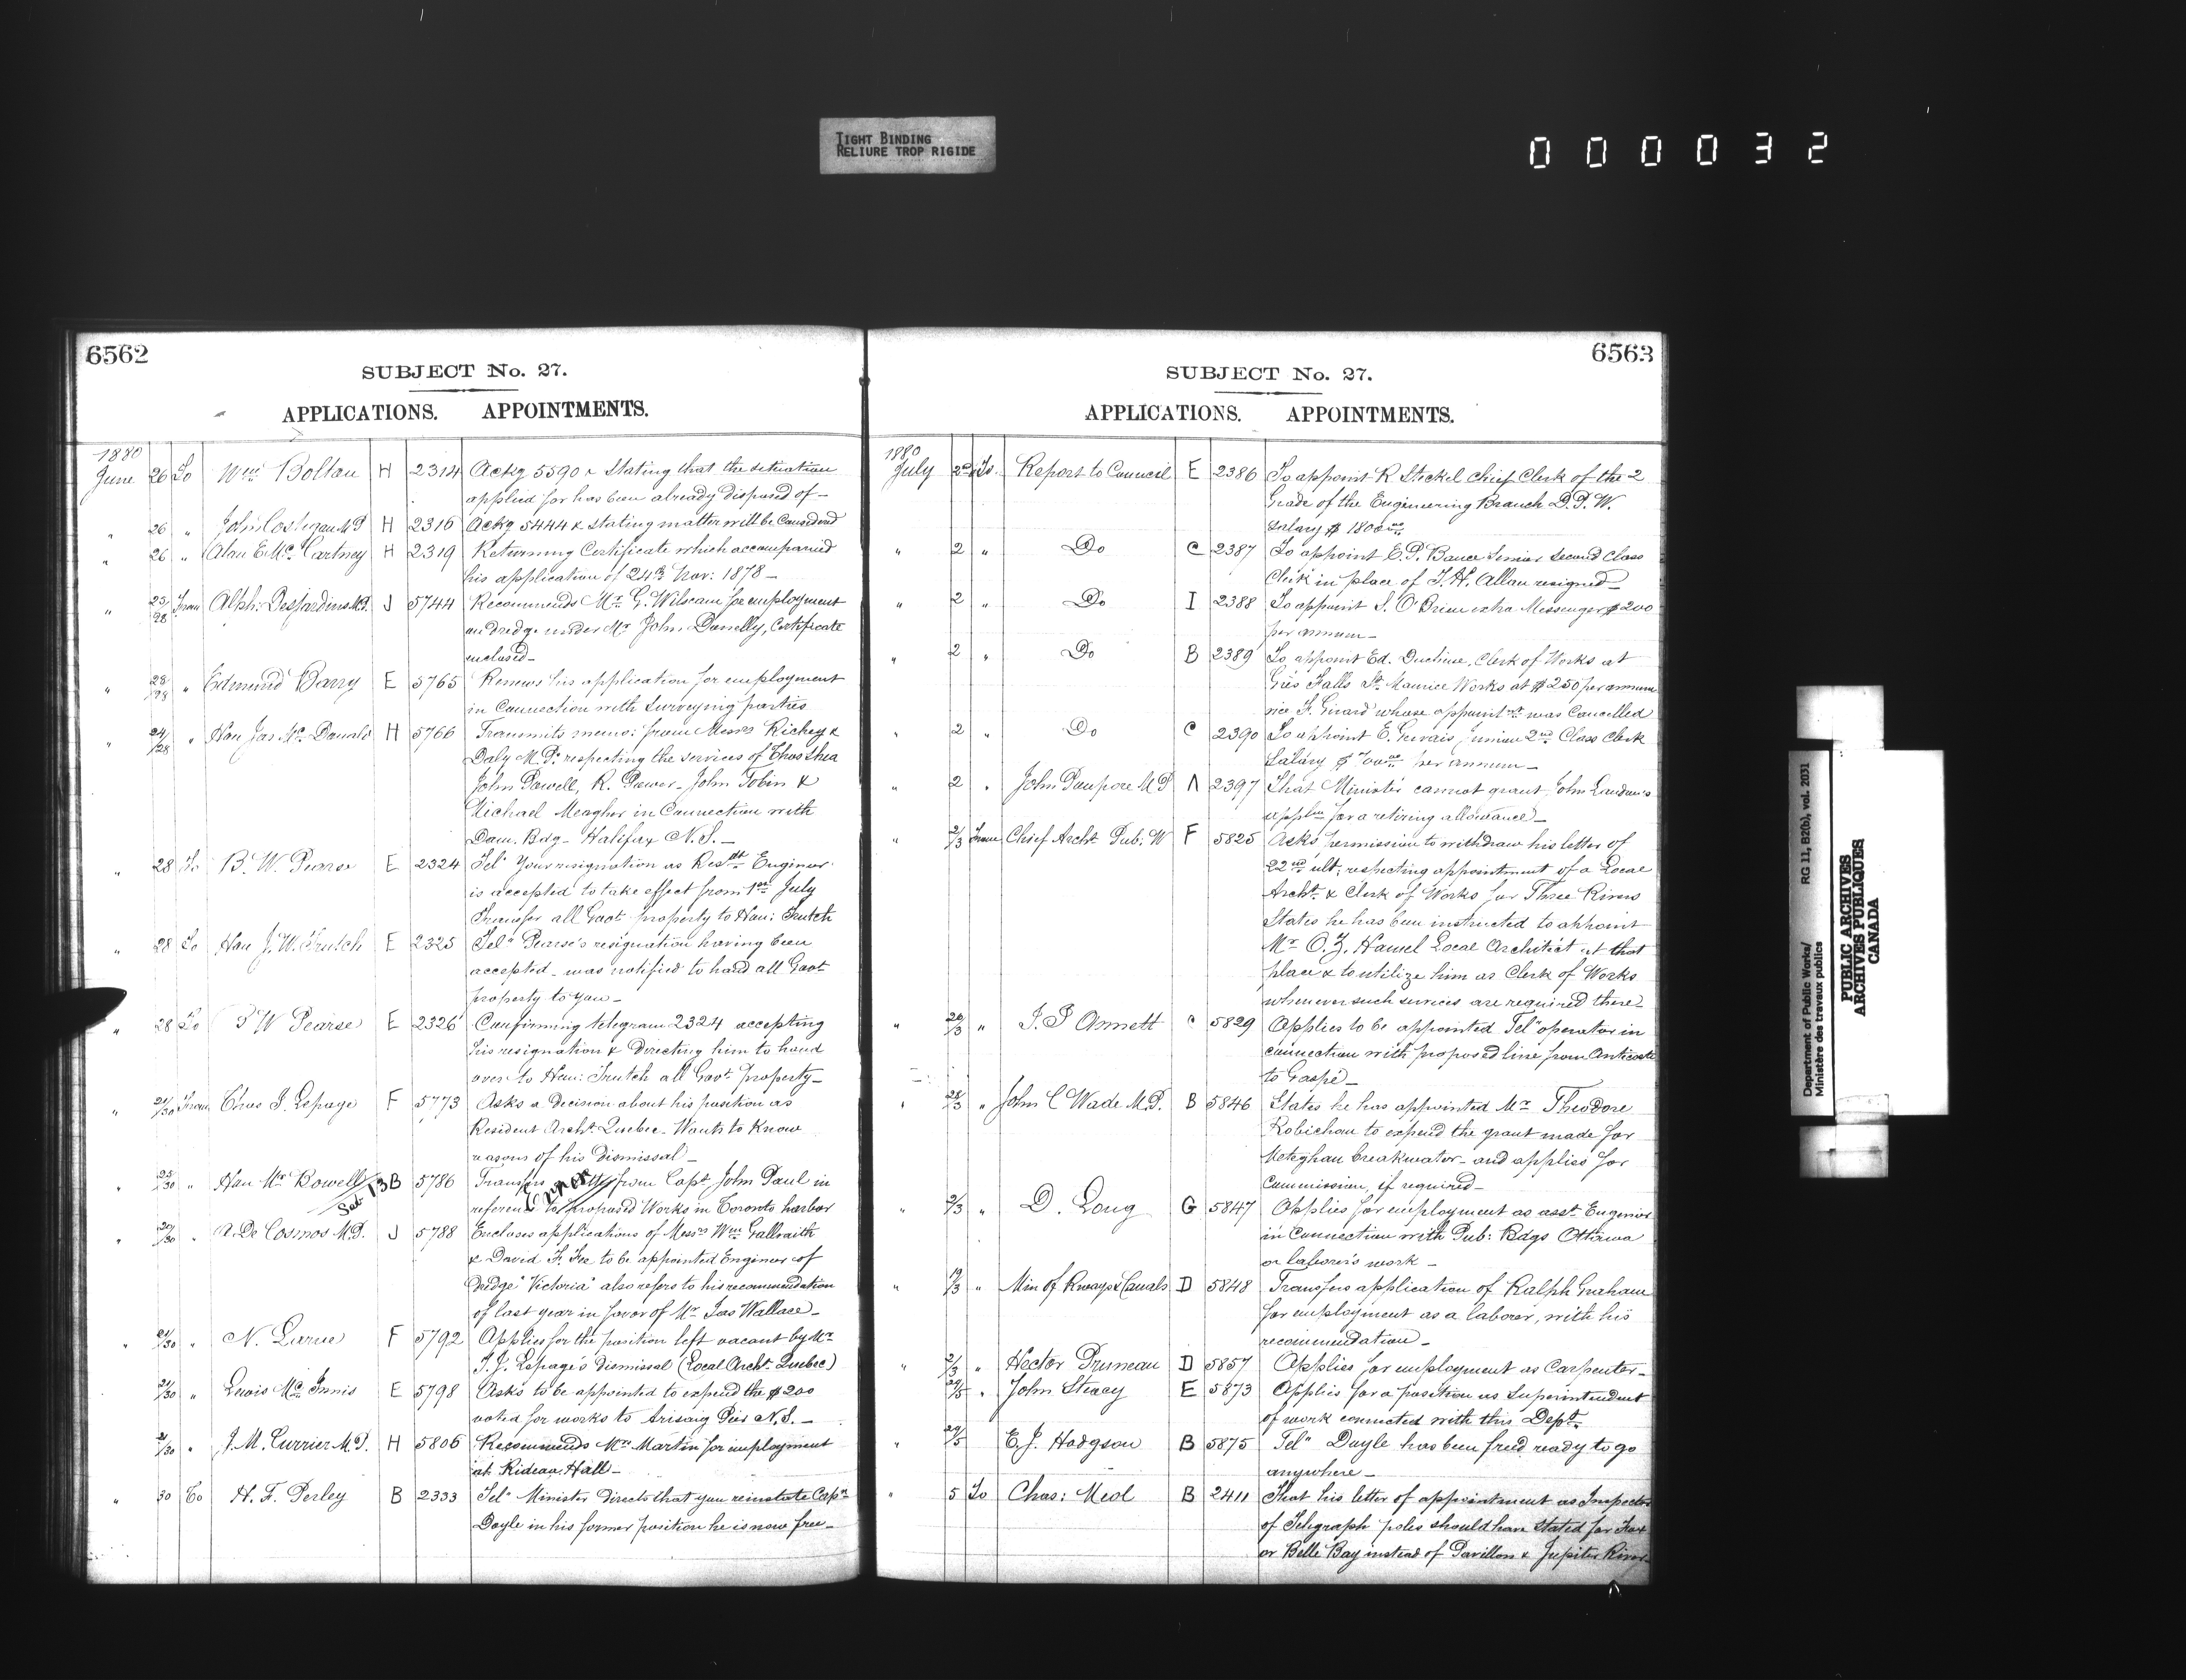 TIGHT BINDING
RELIURE TROP RIGIDE
000032
6562
SUBJECT No. 27.
APPLICATIONS. APPOINTMENTS.
1880
June 26 To Wm Boltan H 2314 Ackg 5590 & Stating that the situation
applied for has been already disposed of -
" 26 " John Costigan MP H 2316 Ackg 5444 & stating matter will be Considered
" 26 " Alan E Mc Cartney H 2319 Returning Certificate which accompanied
his application of 24th Nov: 1878 -
" 25/28 From Alph: Desjardins M.P. J 5744 Recommends Mr G. for employment
on dredge under Mr John Donelly, Certificate
enclosed -
" 28/28 " Edmund Barry E 5765 Renews his application for employment
in Connection with Surveying parties
" 24/28 " Hon Jas Mc Donald H 5766 Transmits memo: from Messrs Richey &
Daly M.Ps respecting the services of Thos Shea
John Powell, R. Power - John Tobin &
Michael Meagher in Connection with
Dom. Bdg - Halifax N.S. -
" 28 To B. W. Pearse E 2324 Tel" Your resignation as Resdt Engineer
is accepted to take effect from 1st July
Transfer all Govt property to Hon: Trutch
" 28 To Hon J. W. Trutch E 2325 Tel" Pearse's resignation having been
accepted - was notified to hand all Govt
property to you -
" 28 To B W Pearse E 2326 Confirming telegram 2324 accepting
his resignation & Directing him to hand
over to Hon: Trutch all Govt property -
" 21/30 From Thos J. Lepage F 5773 Asks a Decision about his position as
Resident Archt Quebec - Wants to Know
reasons of his Dismissal -
" 25/30 " Hon Mr Bowell B 5786 Transfers from Capt John Paul in
reference to proposed Works in Toronto harbor
" 20/30 " A. De Cosmos M.P. J 5788 Encloses applications of Messrs Wm Gallraith
& David F. Fee to be appointed Engineer of
Dredge "Victoria" also refers to his recommendation
of last year in favor of Mr Jas Wallace -
" 21/30 " N. Larue F 5792 Applies for the position left vacant by Mr
T. J. Lepage's Dismissal (Local Archt Quebec)
21/30 " Lewis Mc Innis E 5798 Asks to be appointed to expend the $200
voted for works to Arisaig Pier N.S. -
/30 " J. M. Currier M.P. H 5806 Recommends Mrs Martin for employment
at Rideau Hall -
" 30 To H. F. Perley B 2333 Tel" Minister directs that you reinstate Capt
Doyle in his former position he is now free -
6563
SUBJECT No. 27.
APPLICATIONS. APPOINTMENTS.
1880
July 2nd To Report to Council E 2386 To appoint R Steckel Chief Clerk of the 2
Grade of the Engineering Branch D. P. W.
Salary $ 1800
" 2 " Do C 2387 To appoint E. P. Senior Second Class
Clerk in place of J. H. Allan resigned -
" 2 " Do I 2388 To appoint J. O'Brien extra Messenger $200
per annum -
" 2 " Do B 2389 To appoint Ed. Duchene, Clerk of Works at
Grès Falls St. Maurice Works at $250 per annum
vice F. Girard whose appointmt was Cancelled
" 2 " Do C 2390 To appoint E. Gervais, junior 2nd Class Clerk
Salary $ 700 per annum -
" 2 " John Poupore M P A 2397 That Minister cannot grant John
appln for a retiring allowance -
" 2/3 From Chief Archt Pub: W F 5825 Asks permission to withdraw his letter of
22nd ult; respecting appointment of a Local
Archt & Clerk of Works for Three Rivers
States he has been instructed to appoint
Mr O. Z. Hamel Local Architect at that
place & to utilize him as Clerk of Works
whenever such services are required there -
" " J. P Annett C 5829 Applies to be appointed Tel" operator in
connection with proposed line from Anticosti
to Gaspé -
" 28/3 " John C Wade M.P. B 5846 States he has appointed Mr Theodore
Robichau to expend the grant made for
Meteghan breakwater - and applies for
Commission, if required -
" 2/3 " D. Long G 5847 Applies for employment as asst Engineer
in Connection with Pub: Bdgs Ottawa
or laborer's work -
" 19/3 " Min of Rways & Canals D 5848 Transfers application of Ralph Graham
for employment as a laborer, with his
recommendation -
" 2/3 " Hector Pruneau D 5857 Applies for employment as Carpenter -
29/5 " John Stacy E 5873 Applies for a position as Superintendent
of work connected with this Dept
" 29/5 E. J. Hodgson B 5875 Tel" Doyle has been freed ready to go
anywhere -
" 5 To Chas: Meol B 2411 That his letter of appointment as Inspector
of Telegraph poles should have Stated for Fox
or Belle Bay instead of Pavillon & Jupiter River
Department of Public Works/ RG 11, B2(b), vol. 2031
Ministère des travaux publics
PUBLIC ARCHIVES
ARCHIVES PUBLIQUES
CANADA